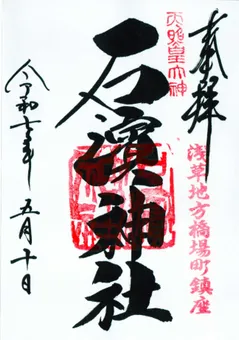 奉拝
浅草地方橋場町鎮座
天照皇大神
石濱神社
令和七年五月十日